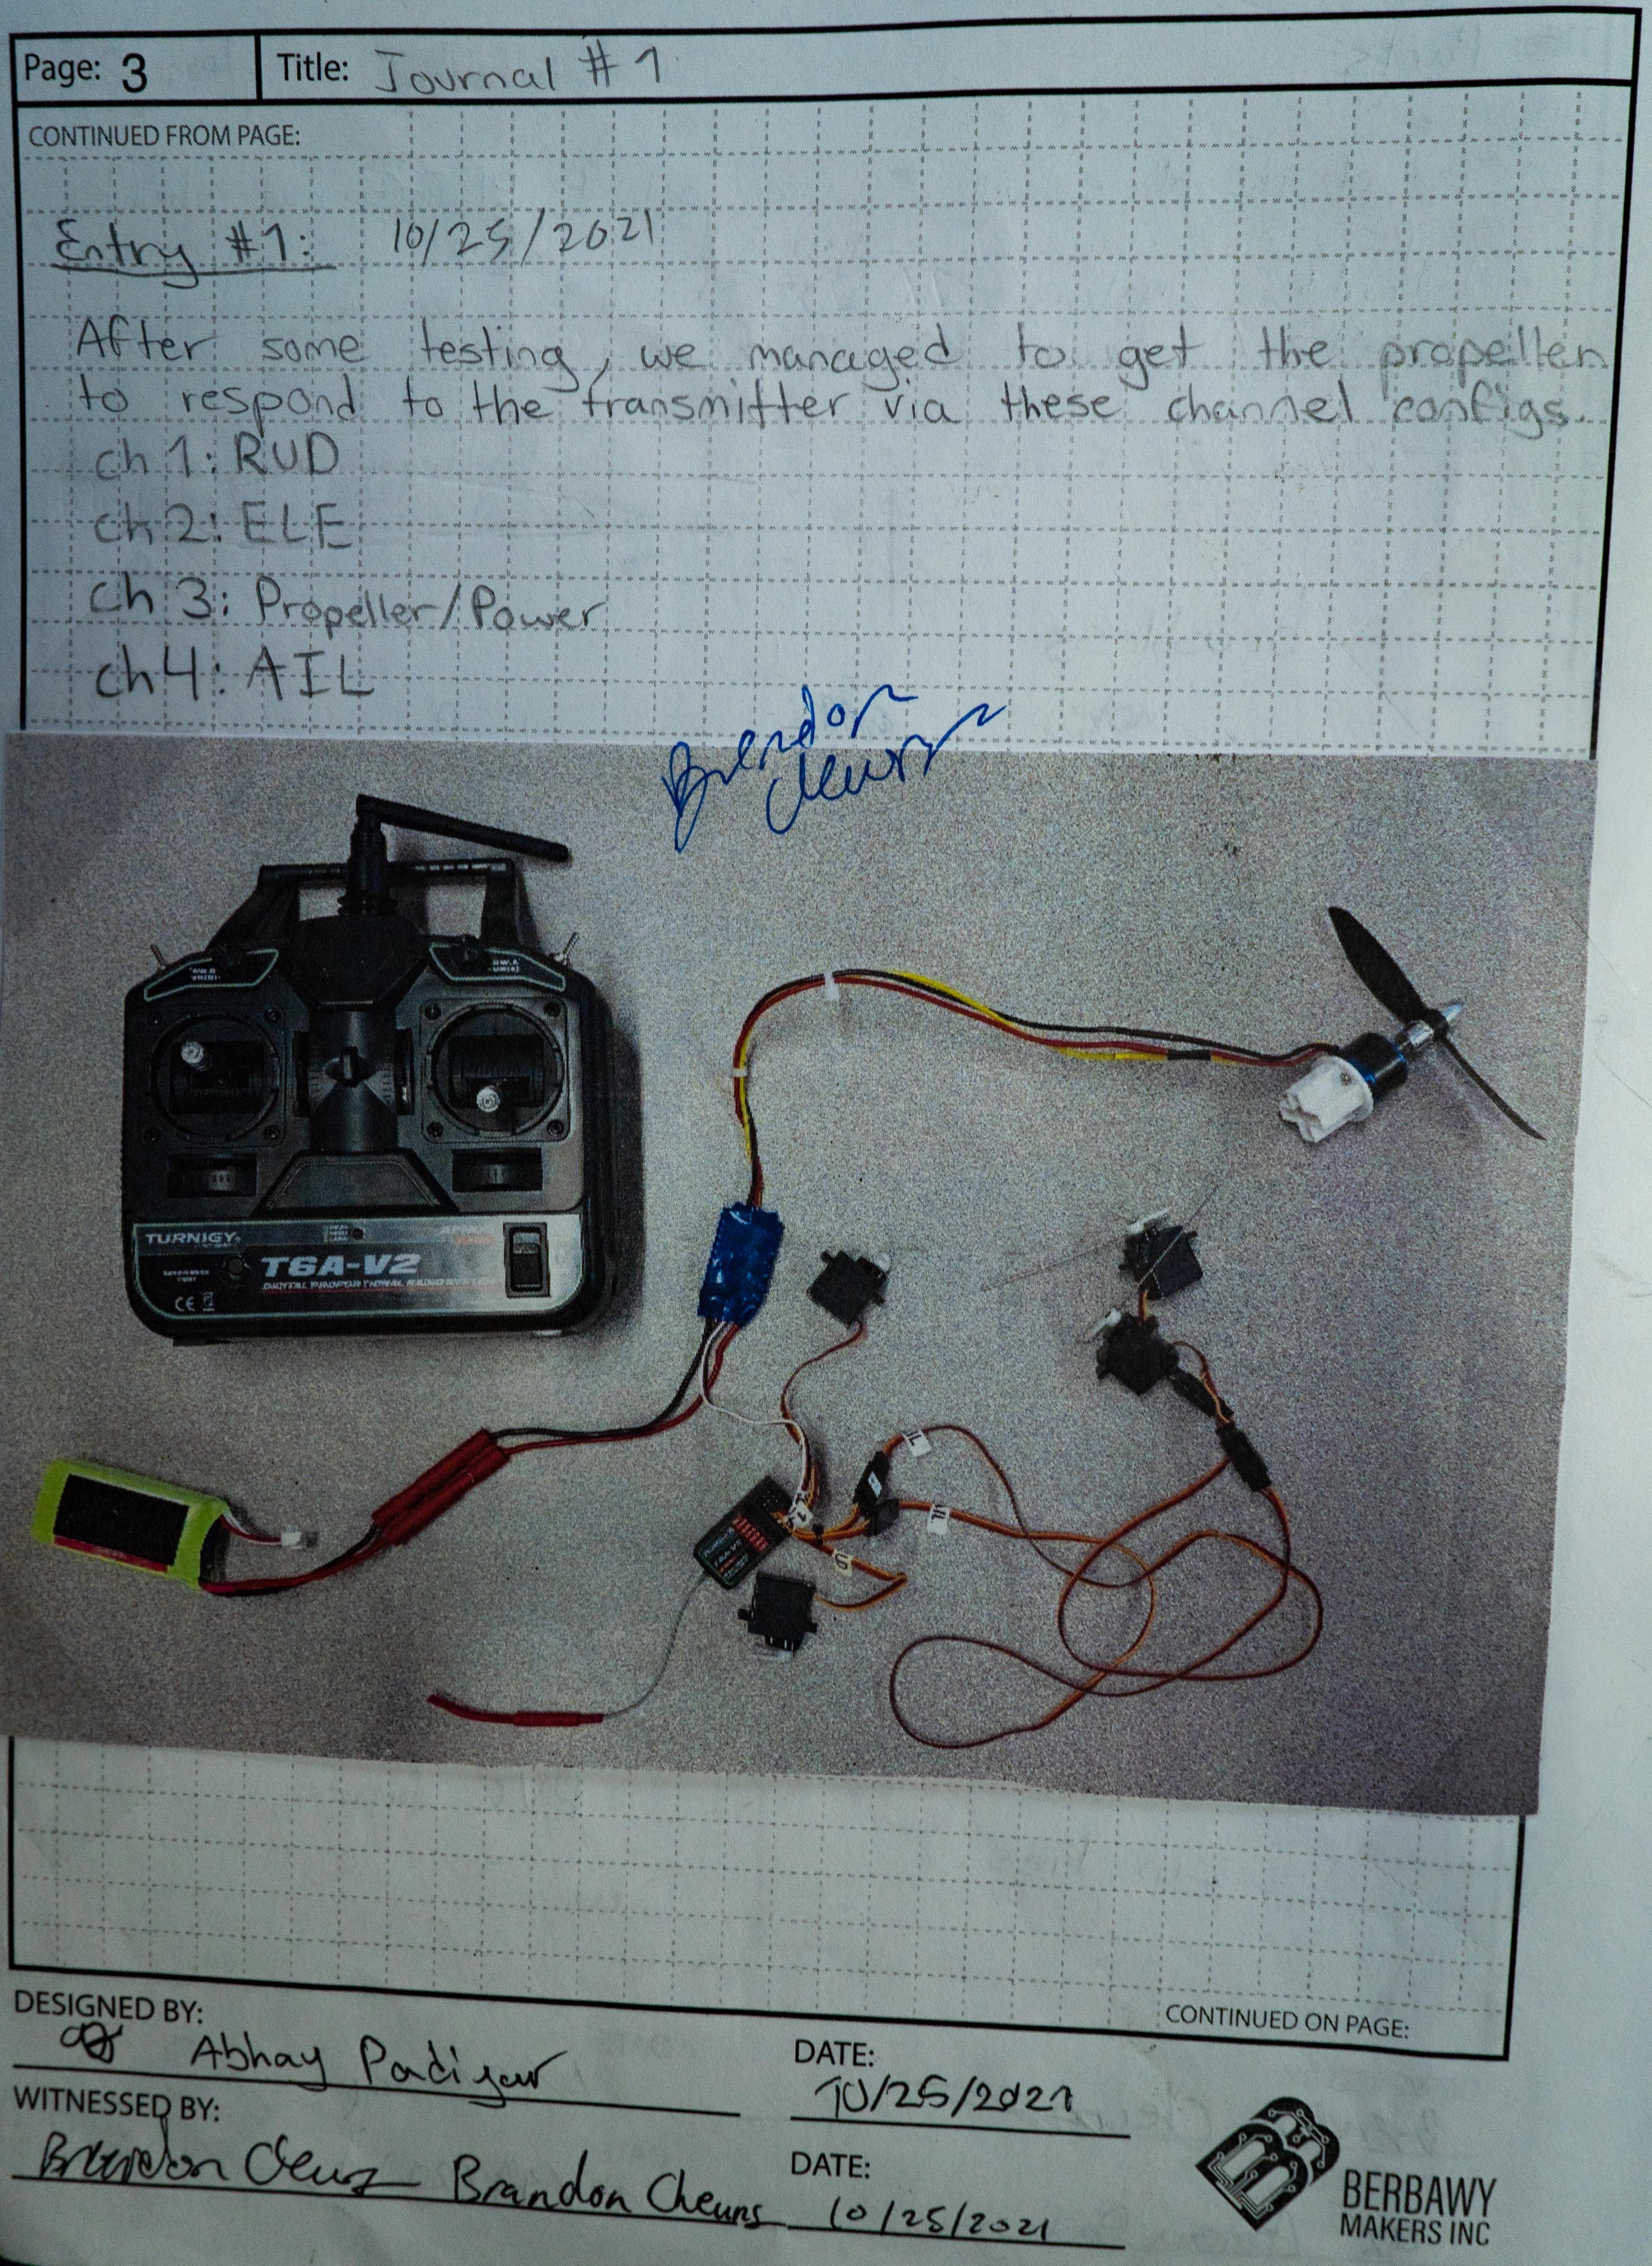 Page: 3
Title: Journal #1
CONTINUED FROM PAGE:
Entry #1: 10/25/2021
After some testing, we managed to get the propeller
to respond to the transmitter via these channel configs.
ch 1: RUD
ch 2: ELE
ch 3: Propeller/Power
ch 4: AIL
Brandon
Cheung
TURNIGY
T6A-V2
DIGITAL PROPORTIONAL RADIO SYSTEM
CE
CONTINUED ON PAGE:
DESIGNED BY:
Abhay Padiyar
DATE:
10/25/2021
WITNESSED BY:
Brandon Cheung Brandon Cheung
DATE:
10/25/2021
BERBAWY
MAKERS INC